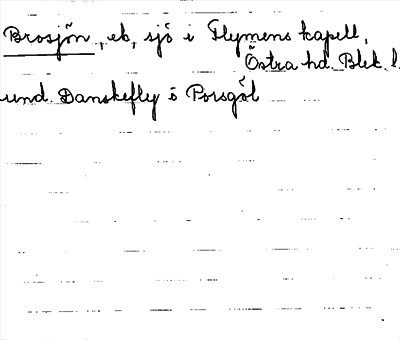 Brosjön, eb, sjö i Flymens kapell,
Östra hd. Blek. l.
und. Danskefly ö Porsgöl